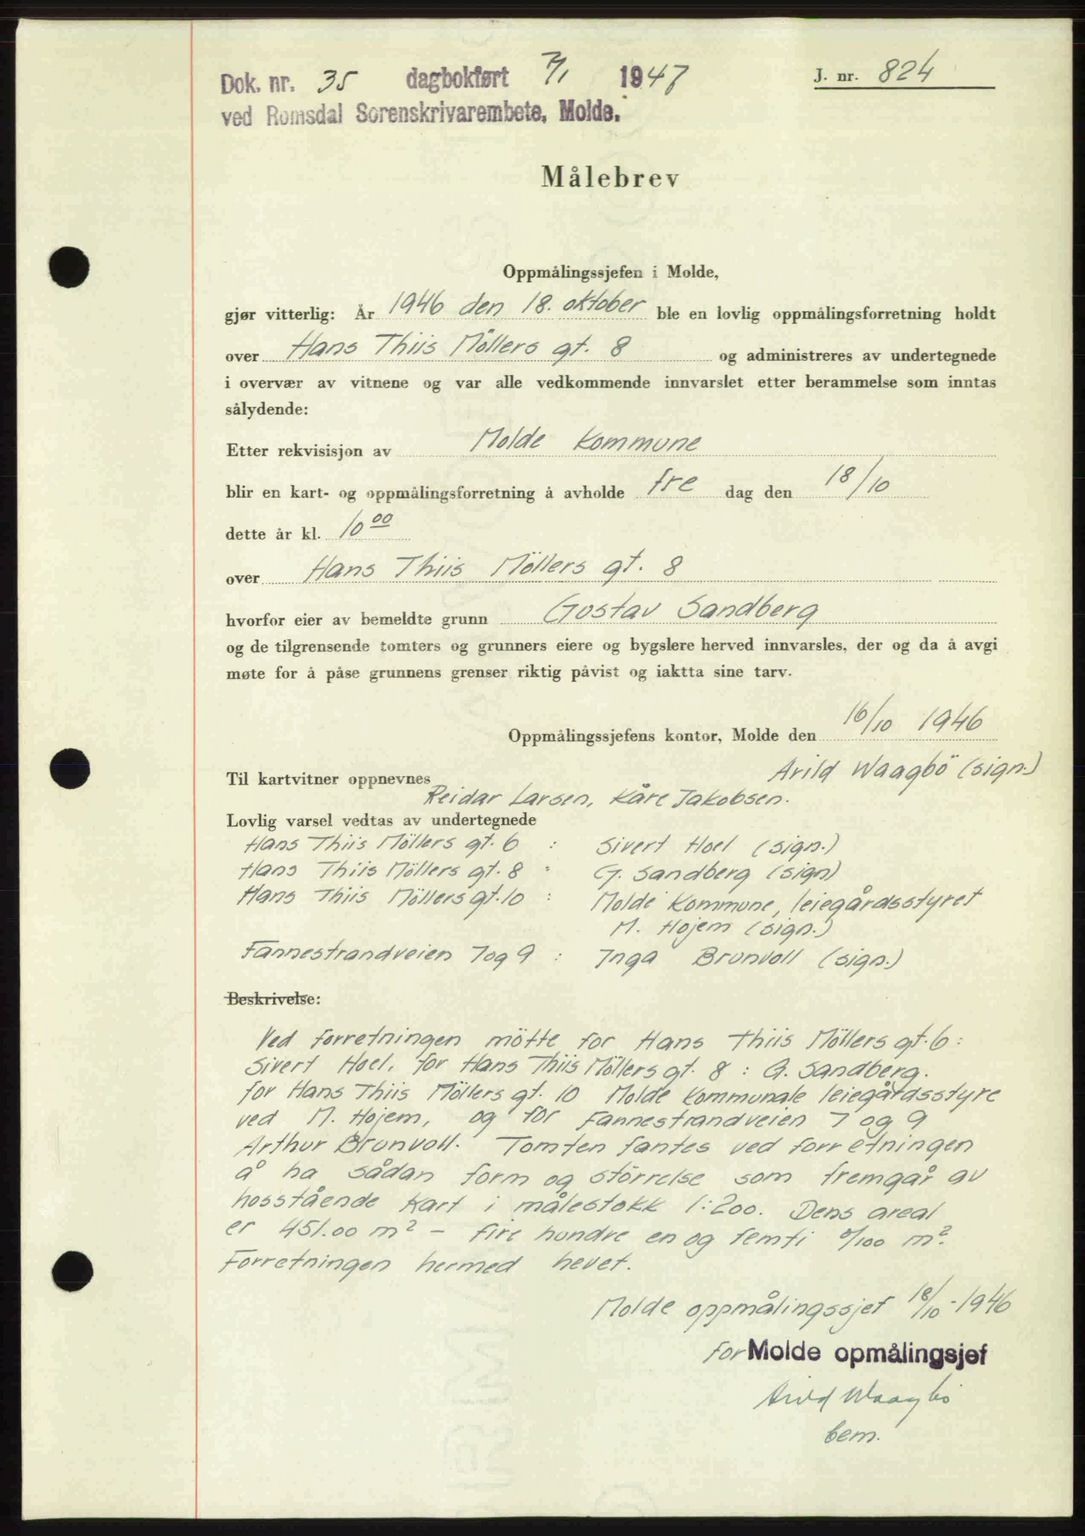 Dok. nr. 35 dagbokført 7/1 1947
ved Romsdal Sorenskrivarembete, Molde.
J. nr. 824
Målebrev
Oppmålingssjefen i Molde,
gjør vitterlig: År 1946 den 18. oktober ble en lovlig oppmålingsforretning holdt
over Hans Thiis Möllers gt. 8 og administreres av undertegnede
i overvær av vitnene og var alle vedkommende innvarslet etter berammelse som inntas
sålydende:
Etter rekvisisjon av Molde Kommune
blir en kart- og oppmålingsforretning å avholde fre dag den 18/10
dette år kl. 10 00
over Hans Thiis Möllers gt. 8
hvorfor eier av bemeldte grunn Gustav Sandberg
og de tilgrensende tomters og grunners eiere og bygslere herved innvarsles, der og da å avgi
møte for å påse grunnens grenser riktig påvist og iaktta sine tarv.
Oppmålingssjefens kontor, Molde den 16/10 1946
Arild Waagbö (sign.)
Til kartvitner oppnevnes
Reidar Larsen, Kåre Jakobsen.
Lovlig varsel vedtas av undertegnede
Hans Thiis Möllers gt. 6 : Sivert Hoel (sign.)
Hans Thiis Möllers gt. 8 : G. Sandberg (sign)
Hans Thiis Möllers gt. 10 : Molde Kommune, leiegårdsstyret
M. Hojem (sign.)
Fannestrandveien 7 og 9 : Inga Brunvoll (sign.)
Beskrivelse:
Ved forretningen mötte for Hans Thiis Möllers gt. 6 :
Sivert Hoel, for Hans Thiis Möllers gt. 8 : G. Sandberg.
for Hans Thiis Möllers gt. 10 Molde Kommunale leiegårdsstyre
ved M. Hojem, og for Fannestrandveien 7 og 9
Arthur Brunvoll. Tomten fantes ved forretningen
å ha sådan form og störrelse som fremgår av
hosstående kart i målestokk 1:200. Dens areal
er 451.00 m² - fire hundre en og femti 0/100 m².
Forretningen hermed hevet.
Molde oppmålingssjef 18/10 - 1946
for Molde opmålingsjef
Arild Waagbö
bem.